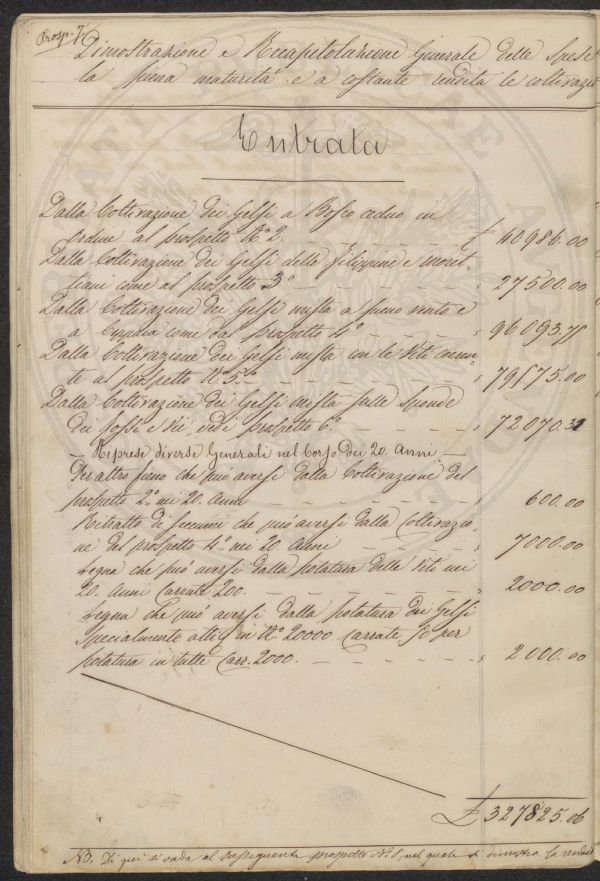 Prosp. 7.
Dimostrazione e Recapitolazione Generale delle Spese
la piena maturità e a costante rendita le coltivazio
Entrata
Dalla Coltivazione dei Gelsi a Bosco ceduo in
ordine al prospetto N.º 2. £ 40986.00
Dalla Coltivazione dei Gelsi delle filippine e moret-
tiani come al prospetto 3º 27500.00
Dalla Coltivazione dei Gelsi mista a pieno vento e
a come dal prospetto 4º 96093.75
Dalla Coltivazione dei Gelsi mista con le Viti
te al prospetto N.º 5º 79575.00
Dalla Coltivazione dei Gelsi mista sulle sponde
dei fossi e vedi prospetto 6º 72070.31
— Riprese diverse Generali nel Corso dei 20. Anni —
Per altro fieno che può aversi dalla Coltivazione del
prospetto 2º nei 20. Anni 600.00
Ritratto di che può aversi dalla Coltivazio-
ne del prospetto 4º nei 20. Anni 7000.00
Legna che può aversi dalla potatura delle Viti nei
20. Anni Carrate 200. 2000.00
Legna che può aversi dalla potatura dei Gelsi
specialmente alti in N.º 20000 Carrate per
potatura in tutte Carr. 2000. 2000.00
£ 327825.06
NB. Di qui si vada al susseguente prospetto N. 8, nel quale si dimostra la rendi